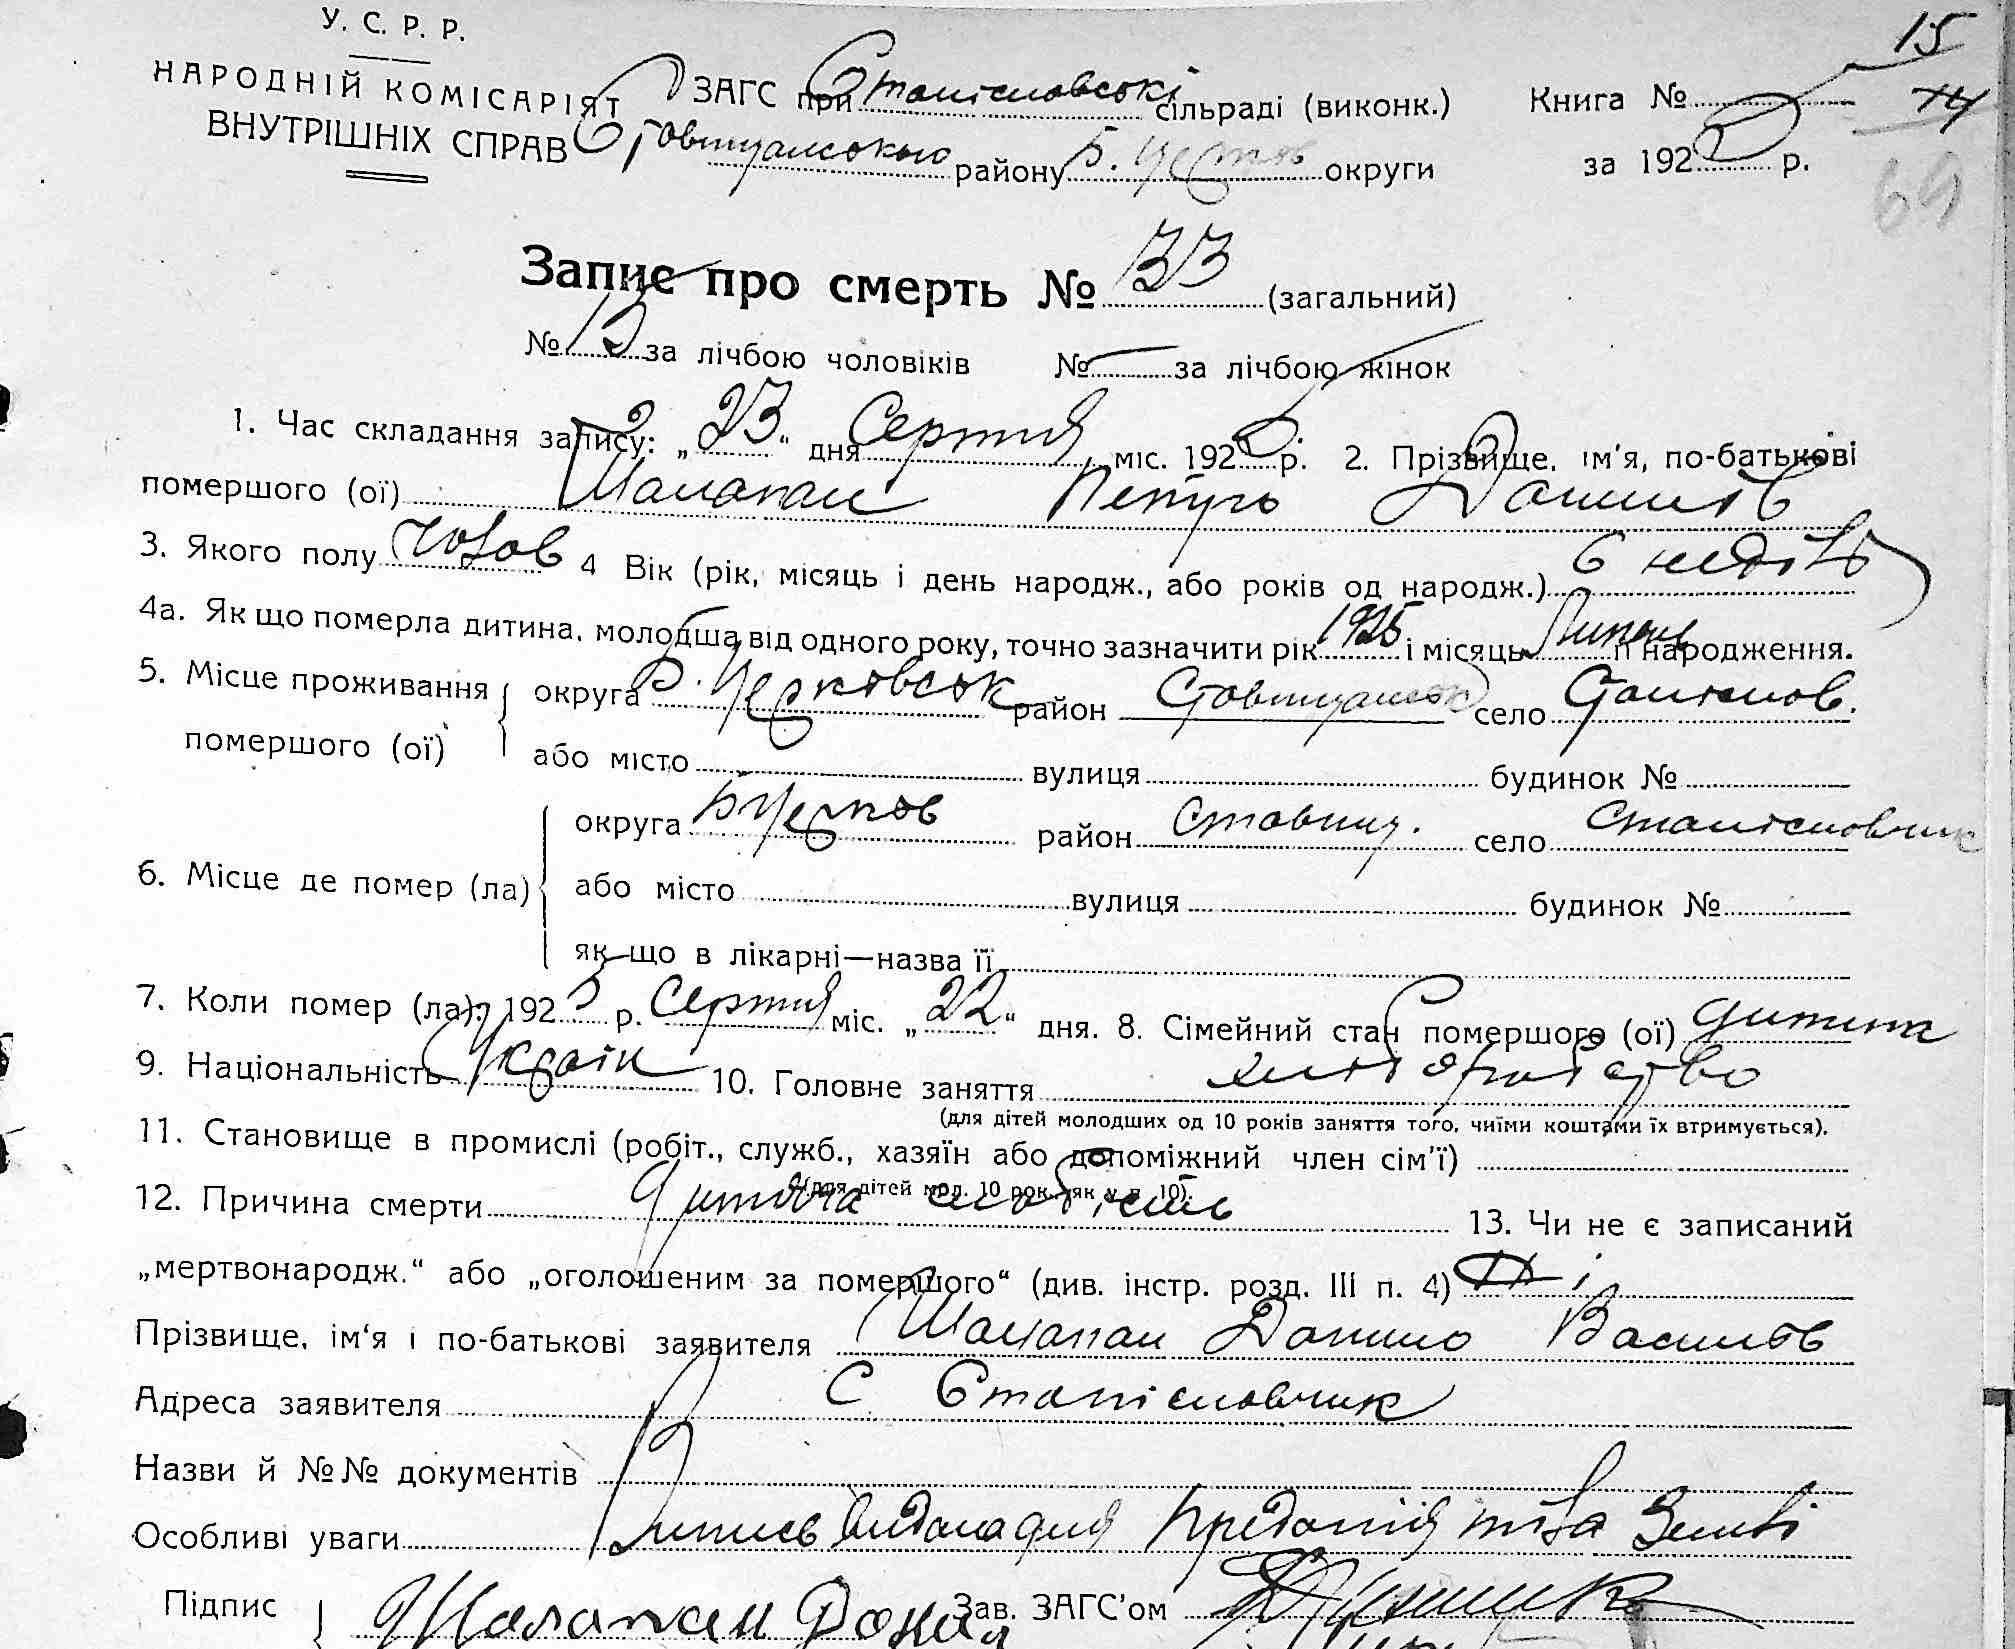 У. С. Р. Р.
НАРОДНІЙ КОМІСАРІЯТ
ВНУТРІШНІХ СПРАВ
ЗАГС при Станісловські сільраді (виконк.)
району Б. Церков округи
Книга № 15
14
за 1925 р.
69
Запис про смерть № 33 (загальний)
№ 13 за лічбою чоловіків № — за лічбою жінок
1. Час складання запису: „23“ дня Серпня міс. 1925 р. 2. Прізвище, ім'я, по-батькові
помершого (ої) Шалапан Петро Данилів
3. Якого полу чолов 4 Вік (рік, місяць і день народж., або років од народж.) 6 неділь
4а. Як що померла дитина, молодша від одного року, точно зазначити рік 1925 і місяць Липень народження.
5. Місце проживання помершого (ої) округа Б. Церковськ район село Станіслов.
або місто вулиця будинок №
6. Місце де помер (ла) округа Б Церков район Ставищ. село Станісловчик
або місто вулиця будинок №
як-що в лікарні—назва її
7. Коли помер (ла) 1925 р. Серпня міс. „22“ дня. 8. Сімейний стан помершого (ої) дитина
9. Національність Україн 10. Головне заняття хліборобство
(для дітей молодших од 10 років заняття того, чиїми коштами їх втримується).
11. Становище в промислі (робіт., служб., хазяїн або допоміжний член сім'ї)
(для дітей мол. 10 рок. як у п. 10).
12. Причина смерти Дитяча слабість 13. Чи не є записаний
„мертвонародж.“ або „оголошеним за помершого“ (див. інстр. розд. III п. 4) Ні
Прізвище, ім‘я і по-батькові заявителя Шалапан Данило Василів
Адреса заявителя С Станісловчик
Назви й №№ документів
Особливі уваги Випись видана для предания тіла Землі
Підпис Шалапан Данил Зав. ЗАГС'ом